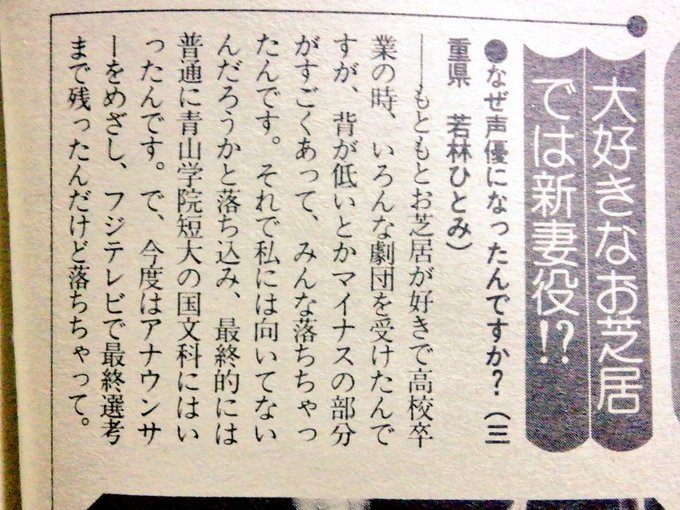 大好きなお芝居
では新妻役!?
●なぜ声優になったんですか?(三
重県 若林ひとみ)
――もともとお芝居が好きで高校卒
業の時、いろんな劇団を受けたんで
すが、背が低いとかマイナスの部分
がすごくあって、みんな落ちちゃっ
たんです。それで私には向いてない
んだろうかと落ち込み、最終的には
普通に青山学院短大の国文科にはい
ったんです。で、今度はアナウンサ
ーをめざし、フジテレビで最終選考
まで残ったんだけど落ちちゃって。